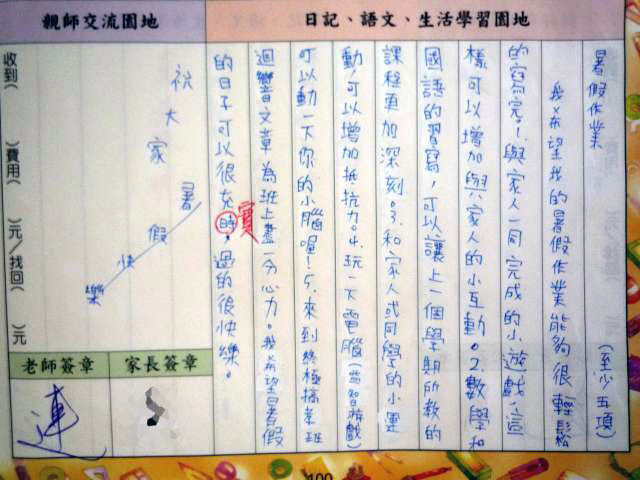 日記、語文、生活學習園地
親師交流園地
暑假作業 (至少五項)
我希望我的暑假作業能夠很輕鬆
的寫完!與家人一同完成的小遊戲,這
樣可以增加與家人的小互動。2.數學和
國語的習寫,可以讓上一個學期所教的
課程更加深刻。3.和家人或同學的小運
動,可以增加抵抗力。4.玩一下電腦(益智遊戲)
可以動一下你的小腦喔!5.來到終極搞笑班
迴響文章,為班上盡一分心力。我希望暑假
的日子可以很充時,過的很快樂。
實
祝大家暑假快樂
收到( )費用( )元/找回( )元
家長簽章
老師簽章
連
100